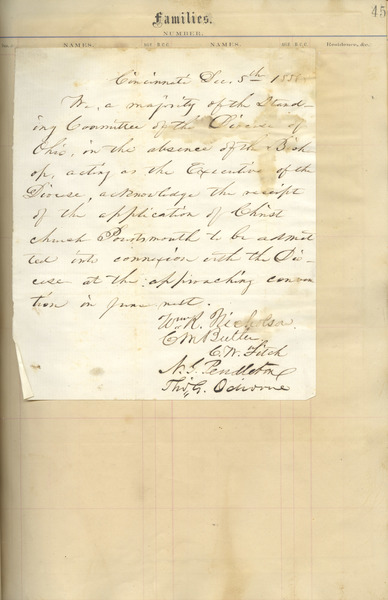 45
Families.
NUMBER.
NAMES. NAMES. Residence, &c.
Cincinnati Dec. 5th
We, a majority of the Stand-
ing Committee of the Diocese of
Ohio, in the absence of the Bish
op, acting as the Executive of the
Diocese, acknowledge the receipt
of the application of Christ
church Portsmouth to be admit
ted into connexion with the Dio-
cese at the approaching conven
tion in June next.
Wm R. Nicholson
C M Butler
E. W. Fitch
N. G. Pendleton
Tho. G. Odiorne